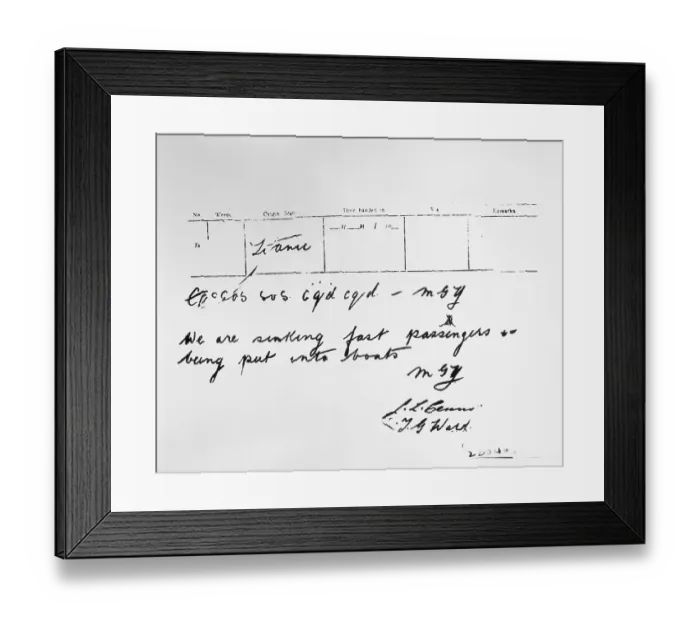 No. Words. Origin. Time handed in. Via. Remarks.
Titanic
sos sos cqd cqd - MGY
We are sinking fast passengers are
being put into boats
MGY